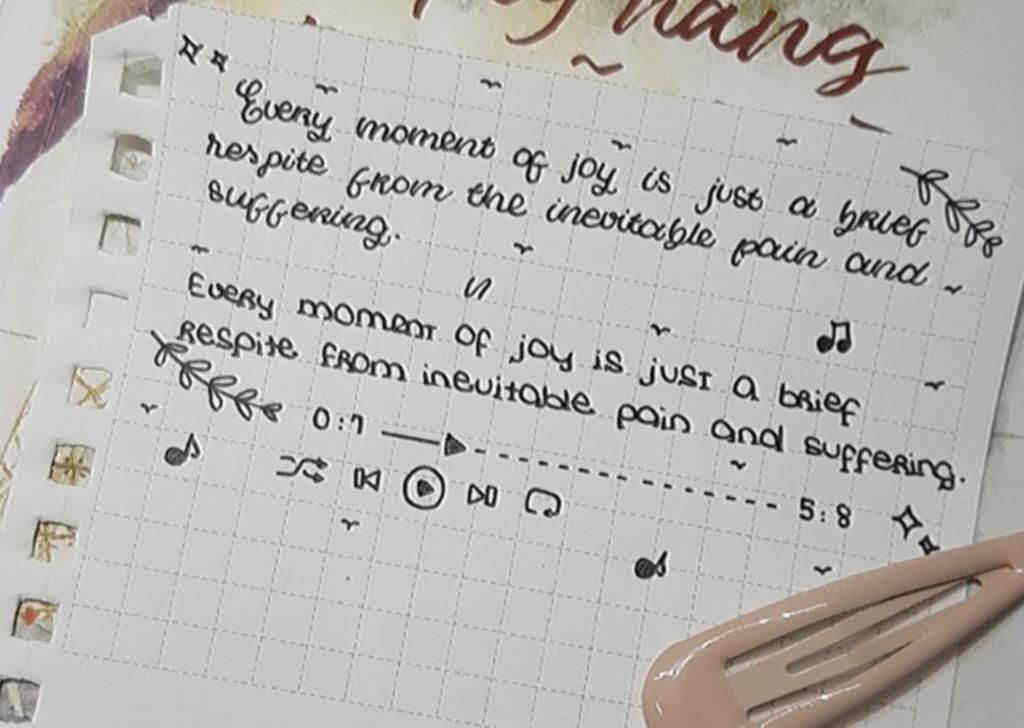 hang
Every moment of joy is just a brief
respite from the inevitable pain and
suffering.
Every moment of joy is just a brief
respite from inevitable pain and suffering.
0:7 5:8